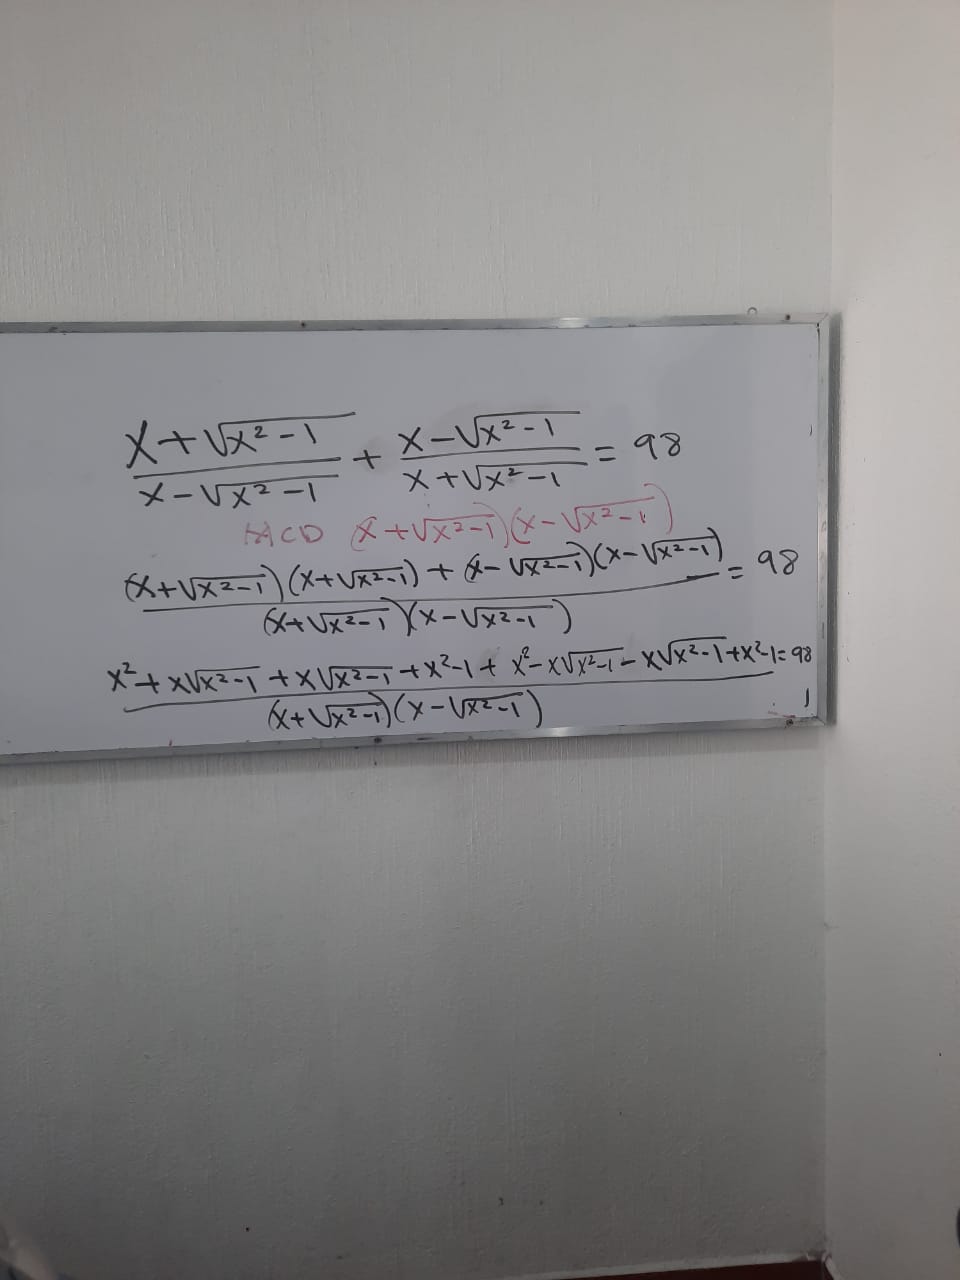 (x+√(x²-1))/(x-√(x²-1)) + (x-√(x²-1))/(x+√(x²-1)) = 98
MCD (x+√(x²-1))(x-√(x²-1))
((x+√(x²-1))(x+√(x²-1)) + (x-√(x²-1))(x-√(x²-1)))/((x+√(x²-1))(x-√(x²-1))) = 98
(x²+x√(x²-1)+x√(x²-1)+x²-1+x²-x√(x²-1)-x√(x²-1)+x²-1)/((x+√(x²-1))(x-√(x²-1))) = 98